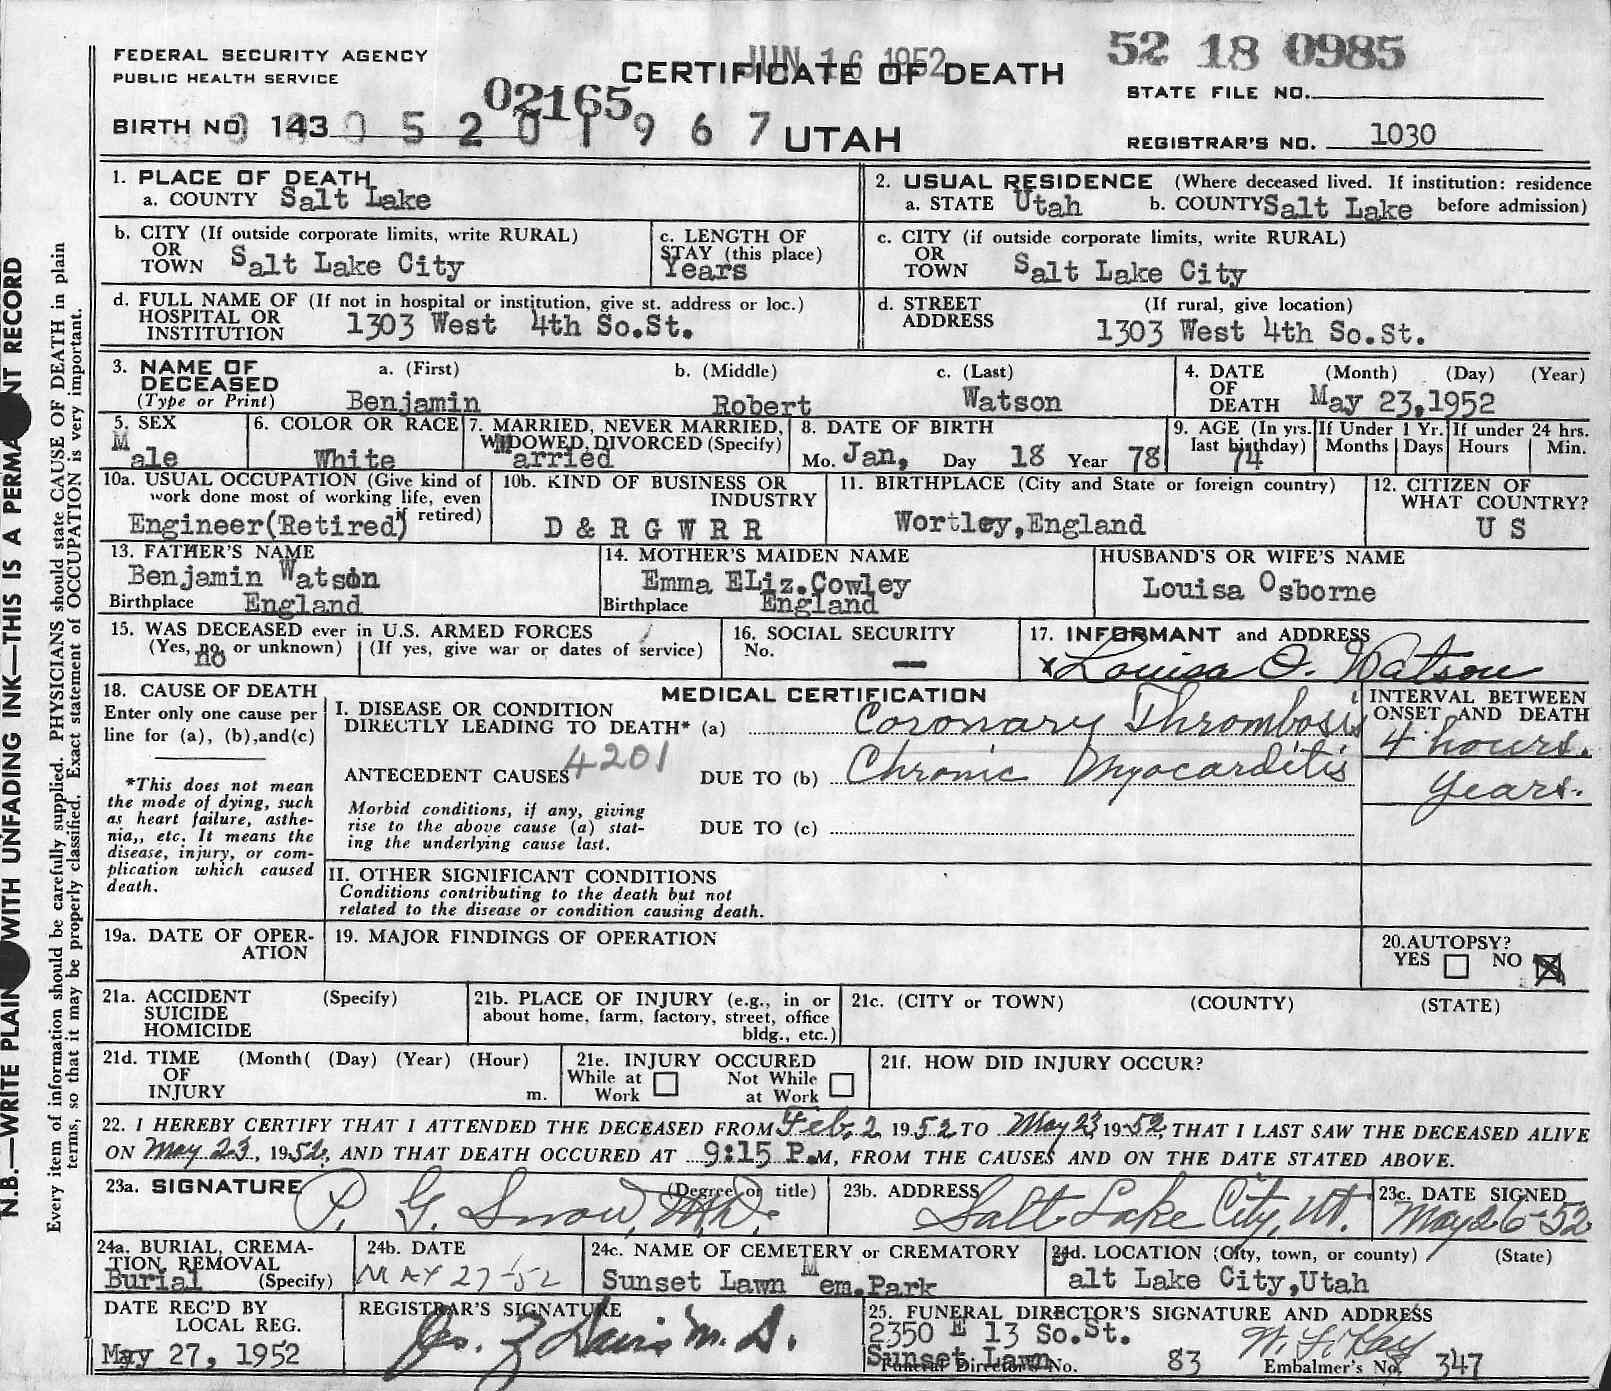 JUN 16 1952
52 18 0985
FEDERAL SECURITY AGENCY
PUBLIC HEALTH SERVICE
CERTIFICATE OF DEATH
STATE FILE NO.
02165
BIRTH NO. 143
0 5 2 0 1 9 6 7
UTAH
REGISTRAR'S NO. 1030
1. PLACE OF DEATH
a. COUNTY Salt Lake
2. USUAL RESIDENCE (Where deceased lived. If institution: residence before admission)
a. STATE Utah b. COUNTY Salt Lake
b. CITY (If outside corporate limits, write RURAL)
OR
TOWN Salt Lake City
c. LENGTH OF
STAY (this place)
Years
c. CITY (if outside corporate limits, write RURAL)
OR
TOWN Salt Lake City
d. FULL NAME OF (If not in hospital or institution, give st. address or loc.)
HOSPITAL OR
INSTITUTION 1303 West 4th So.St.
d. STREET (If rural, give location)
ADDRESS 1303 West 4th So.St.
3. NAME OF
DECEASED
(Type or Print)
a. (First) b. (Middle) c. (Last)
Benjamin Robert Watson
4. DATE (Month) (Day) (Year)
OF
DEATH May 23,1952
5. SEX
Male
6. COLOR OR RACE
White
7. MARRIED, NEVER MARRIED,
WIDOWED, DIVORCED (Specify)
Married
8. DATE OF BIRTH
Mo. Jan, Day 18 Year 78
9. AGE (In yrs. last birthday)
74
If Under 1 Yr. Months Days
If under 24 hrs. Hours Min.
10a. USUAL OCCUPATION (Give kind of
work done most of working life, even
if retired)
Engineer(Retired)
10b. KIND OF BUSINESS OR
INDUSTRY
D & R G W R R
11. BIRTHPLACE (City and State or foreign country)
Wortley,England
12. CITIZEN OF
WHAT COUNTRY?
U S
13. FATHER'S NAME
Benjamin Watson
Birthplace England
14. MOTHER'S MAIDEN NAME
Emma ELiz.Cowley
Birthplace England
HUSBAND'S OR WIFE'S NAME
Louisa Osborne
15. WAS DECEASED ever in U.S. ARMED FORCES
(Yes, no, or unknown) (If yes, give war or dates of service)
no
16. SOCIAL SECURITY
No. —
17. INFORMANT and ADDRESS
x Louisa O. Watson
18. CAUSE OF DEATH
Enter only one cause per
line for (a), (b),and(c)
*This does not mean
the mode of dying, such
as heart failure, asthe-
nia,, etc. It means the
disease, injury, or com-
plication which caused
death.
MEDICAL CERTIFICATION
I. DISEASE OR CONDITION
DIRECTLY LEADING TO DEATH* (a) Coronary Thrombosis
ANTECEDENT CAUSES 4201
DUE TO (b) Chronic Myocarditis
Morbid conditions, if any, giving
rise to the above cause (a) stat-
ing the underlying cause last.
DUE TO (c)
INTERVAL BETWEEN
ONSET AND DEATH
4 hours.
years.
II. OTHER SIGNIFICANT CONDITIONS
Conditions contributing to the death but not
related to the disease or condition causing death.
19a. DATE OF OPER-
ATION
19. MAJOR FINDINGS OF OPERATION
20.AUTOPSY?
YES NO
21a. ACCIDENT (Specify)
SUICIDE
HOMICIDE
21b. PLACE OF INJURY (e.g., in or
about home, farm, factory, street, office
bldg., etc.)
21c. (CITY or TOWN) (COUNTY) (STATE)
21d. TIME (Month( (Day) (Year) (Hour)
OF
INJURY m.
21e. INJURY OCCURED
While at Work Not While at Work
21f. HOW DID INJURY OCCUR?
22. I HEREBY CERTIFY THAT I ATTENDED THE DECEASED FROM Feb. 2 1952 TO May 23 1952, THAT I LAST SAW THE DECEASED ALIVE
ON May 23, 1952, AND THAT DEATH OCCURED AT 9:15 P.M, FROM THE CAUSES AND ON THE DATE STATED ABOVE.
23a. SIGNATURE (Degree or title)
P. G. Snow, M.D.
23b. ADDRESS
Salt Lake City, Ut.
23c. DATE SIGNED
May 26-52
24a. BURIAL, CREMA-
TION, REMOVAL
Burial (Specify)
24b. DATE
MAY 27-52
24c. NAME OF CEMETERY or CREMATORY
Sunset Lawn Mem.Park
24d. LOCATION (City, town, or county) (State)
Salt Lake City,Utah
DATE REC'D BY
LOCAL REG.
May 27, 1952
REGISTRAR'S SIGNATURE
25. FUNERAL DIRECTOR'S SIGNATURE AND ADDRESS
2350 E 13 So.St.
Sunset Lawn
Funeral Director's No. 83
Embalmer's No. 347
N.B.—WRITE PLAIN WITH UNFADING INK—THIS IS A PERMA NT RECORD
Every item of information should be carefully supplied. PHYSICIANS should state CAUSE OF DEATH in plain
terms, so that it may be properly classified. Exact statement of OCCUPATION is very important.